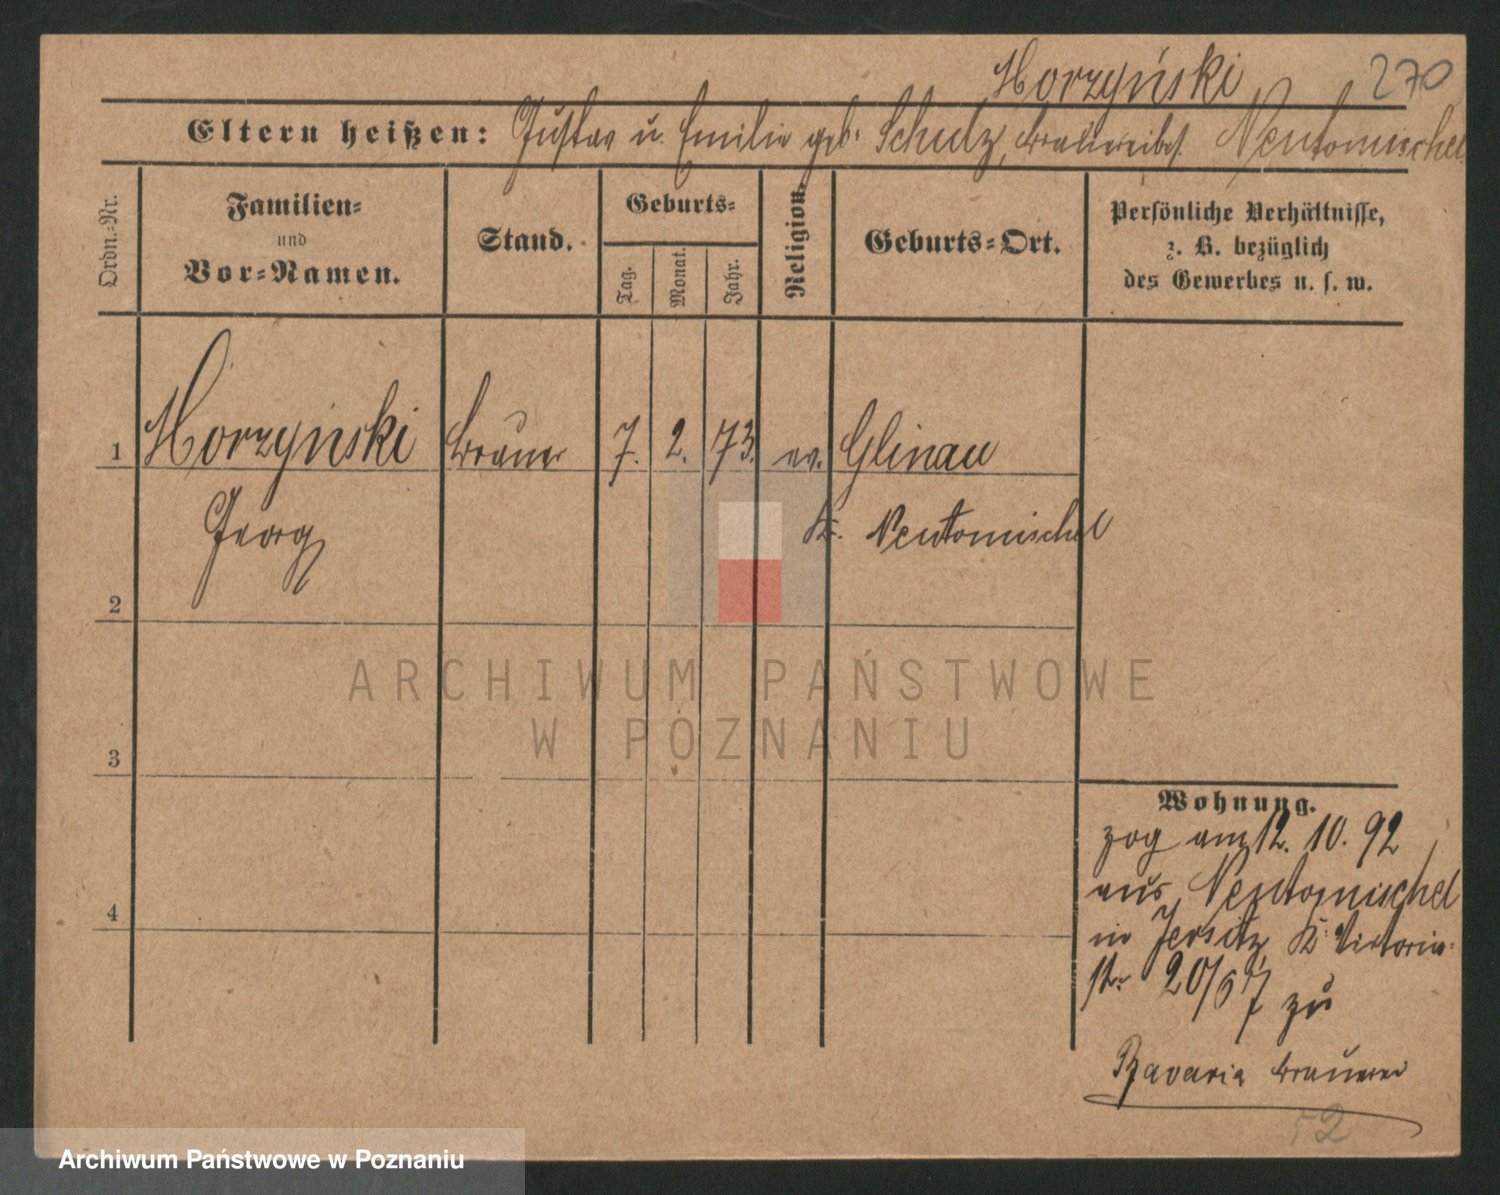 Horzyński 270
Eltern heißen: Gustav u. Emilie geb. Schulz, Brauereibes. Neutomischel
Ordn.-Nr.
Familien-
und
Vor-Namen.
Stand.
Geburts-
Tag.
Monat.
Jahr.
Religion.
Geburts-Ort.
Persönliche Verhältnisse,
z. B. bezüglich
des Gewerbes u. s. w.
1 Horzyński Brauer 7. 2. 73. ev. Glinau
Georg Kr. Neutomischel
2
ARCHIWUM PAŃSTWOWE
W POZNANIU
3
4
Wohnung.
zog am 12. 10. 92
aus Neutomischel
in Jersitz, Kr. Victoria-
str. 20/67 zu
Bavaria Brauerei
52
Archiwum Państwowe w Poznaniu